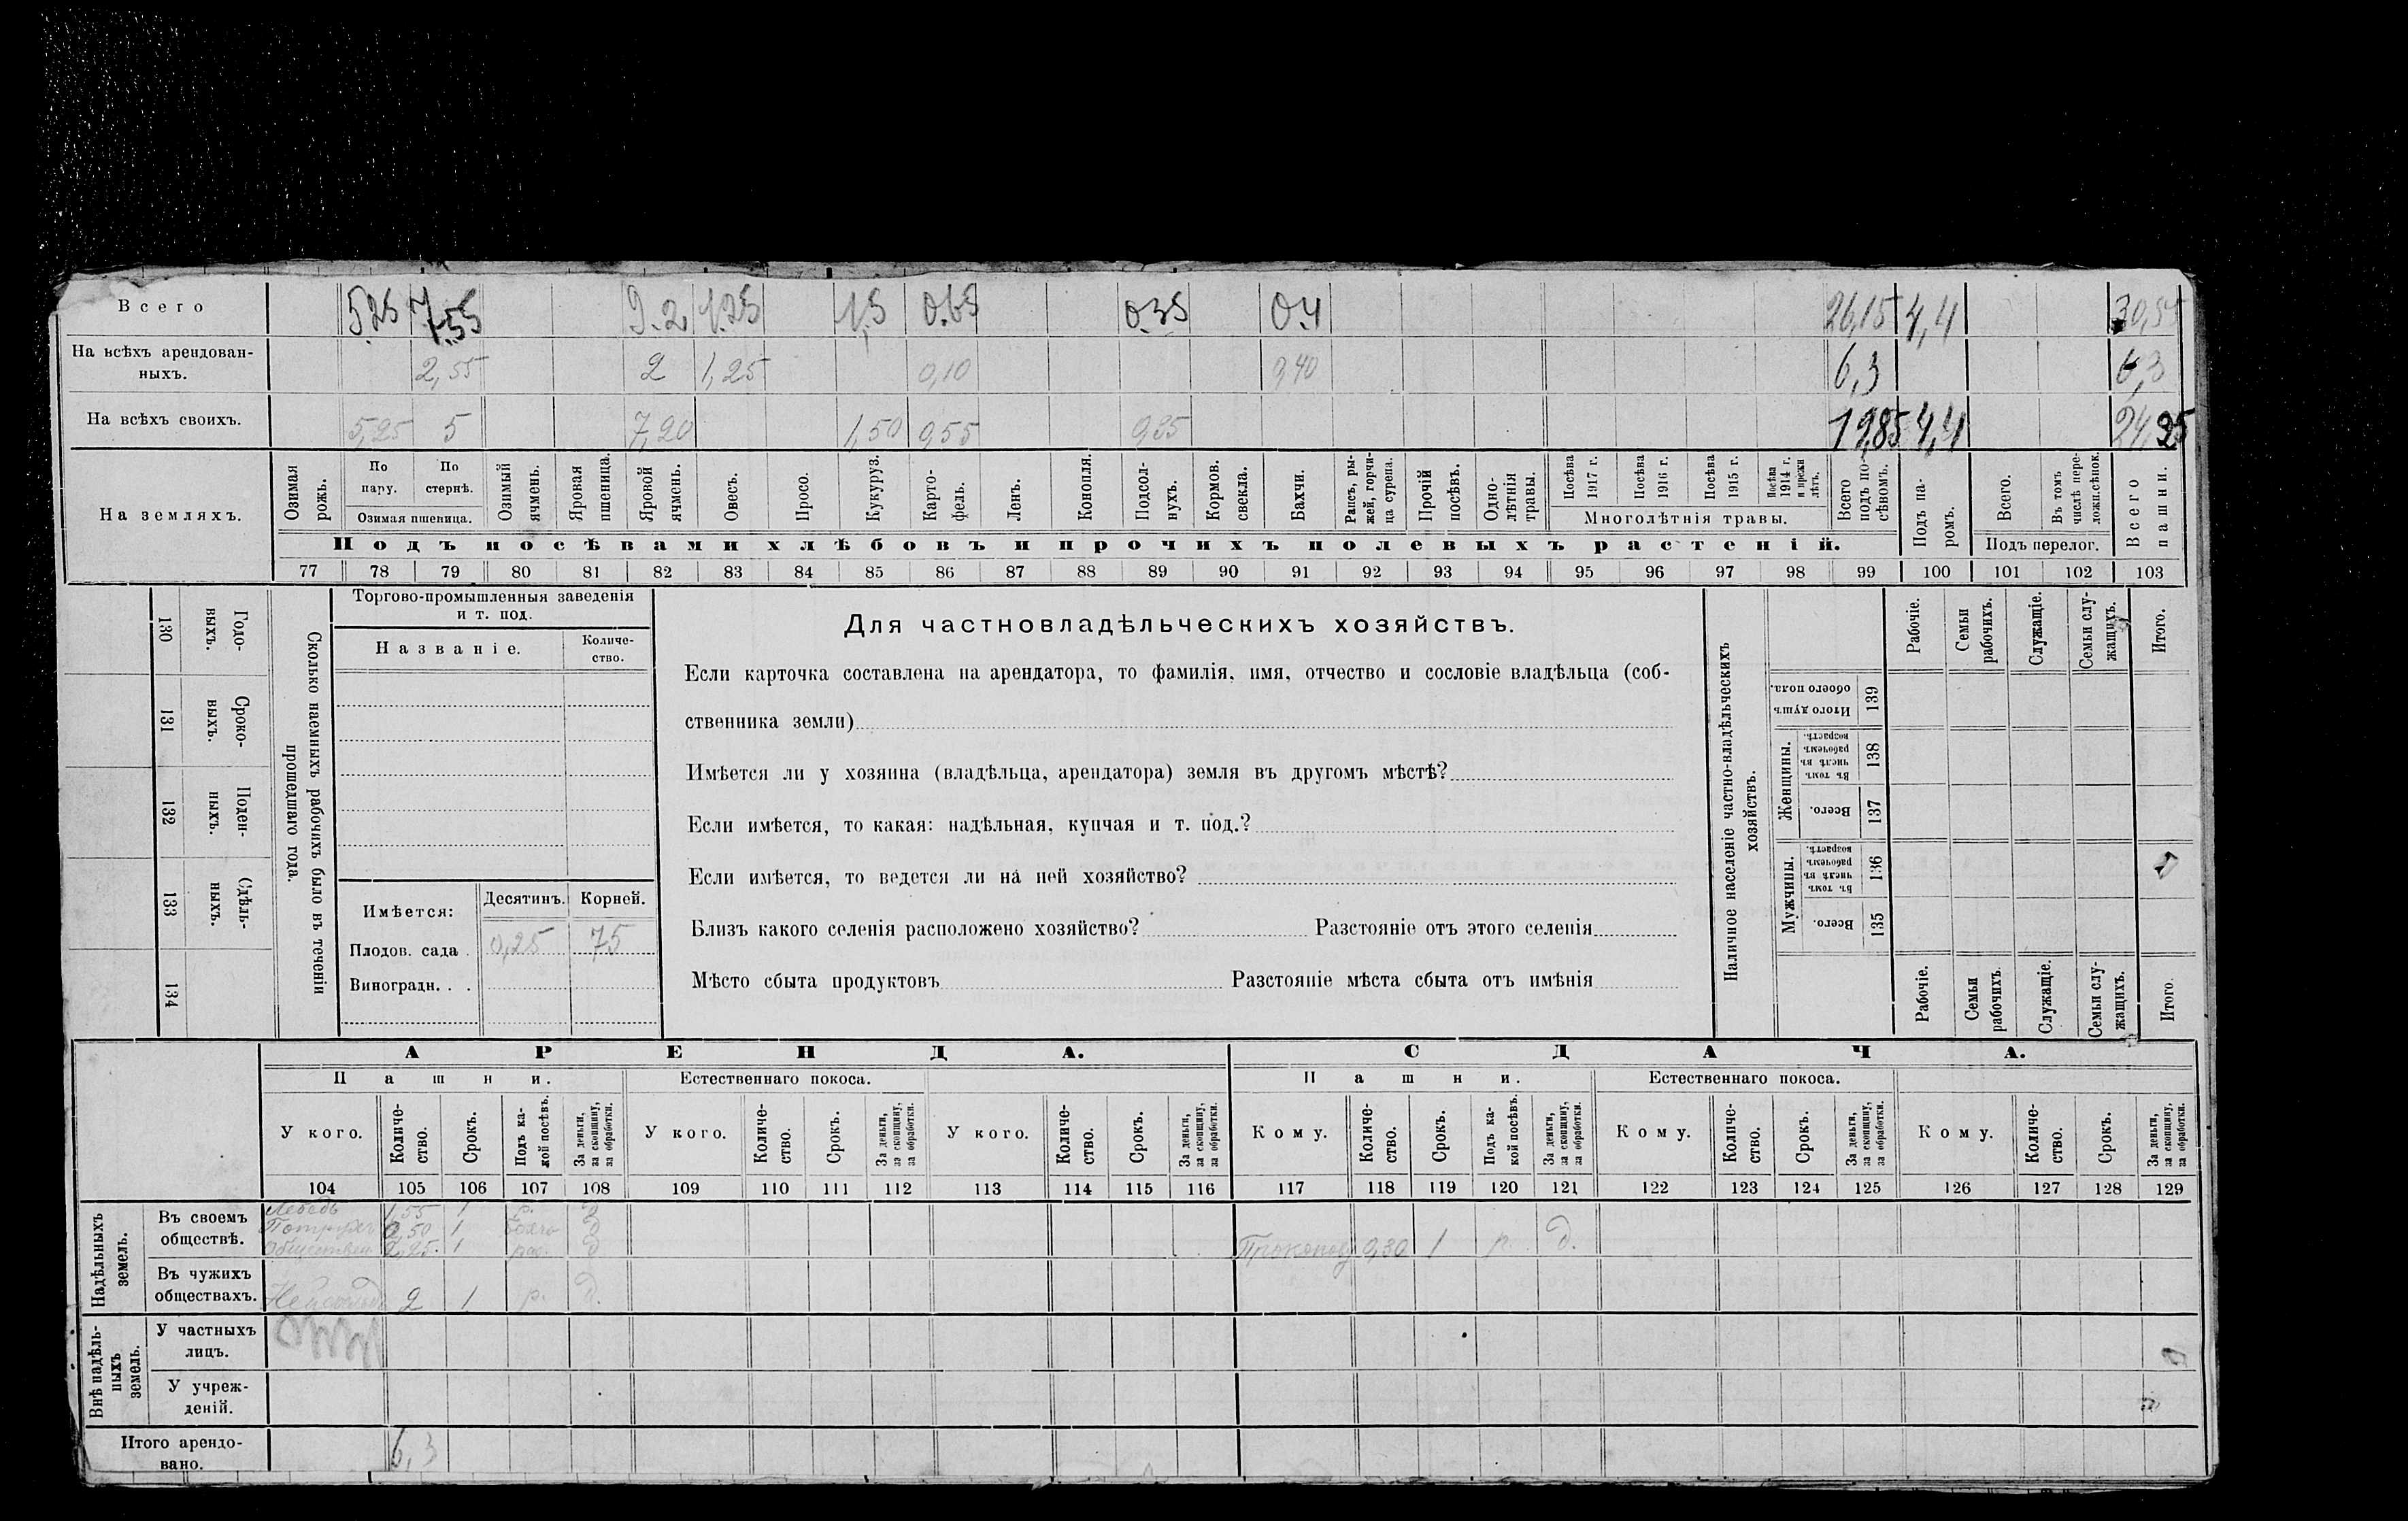 Всего 5,25 7,55 9.2 1.25 1,5 0.65 0.35 0.4 26,15 4,4 30,55
На всѣхъ арендован-
ныхъ. 2,55 2 1,25 0,10 0,40 6,3 6,3
На всѣхъ своихъ. 5,25 5 7,20 1,50 0,55 0,35 19,85 4,4 24,25
На земляхъ.
Озимая рожь.
По пару.
По стернѣ.
Озимая пшеница.
Озимый ячмень.
Яровая пшеница.
Яровой ячмень.
Овесъ.
Просо.
Кукуруз.
Карто-
фель.
Ленъ.
Конопля.
Подсол-
нухъ.
Кормов. свекла.
Бахчи.
Рапсъ, ры-
жей, горчи-
ца сурепа.
Прочій посѣвъ.
Одно-
лѣтнія травы.
Посѣва 1917 г.
Посѣва 1916 г.
Посѣва 1915 г.
Посѣва 1914 г. и прежн лѣтъ.
Многолѣтнія травы.
Всего подъ по-
сѣвомъ.
Подъ па-
ромъ.
Всего.
Въ томъ числѣ пере-
ложн.сѣнок.
Подъ перелог.
Всего пашни.
Подъ посѣвами хлѣбовъ и прочихъ полевыхъ растеній.
77 78 79 80 81 82 83 84 85 86 87 88 89 90 91 92 93 94 95 96 97 98 99 100 101 102 103
130 Годо-
выхъ.
131 Сроко-
выхъ.
132 Поден-
ныхъ.
133 Сдѣль-
ныхъ.
134
Сколько наемныхъ рабочихъ было въ теченіи
прошедшаго года.
Торгово-промышленныя заведенія
и т. под.
Названіе. Количе-
ство.
Имѣется: Десятинъ. Корней.
Плодов. сада . 0,25 75
Виноградн. . .
Для частновладѣльческихъ хозяйствъ.
Если карточка составлена на арендатора, то фамилія, имя, отчество и сословіе владѣльца (соб-
ственника земли)
Имѣется ли у хозяина (владѣльца, арендатора) земля въ другомъ мѣстѣ?
Если имѣется, то какая: надѣльная, купчая и т. под.?
Если имѣется, то ведется ли на ней хозяйство?
Близъ какого селенія расположено хозяйство? Разстояніе отъ этого селенія
Мѣсто сбыта продуктовъ Разстояніе мѣста сбыта отъ имѣнія
Наличное населеніе частно-владѣльческихъ
хозяйствъ.
Рабочіе.
Семьи рабочихъ.
Служащіе.
Семьи слу-
жащихъ.
Итого.
Итого душъ обоего пола. 139
Женщины.
Въ томъ числѣ въ рабочемъ возрастѣ. 138
Всего. 137
Мужчины.
Въ томъ числѣ въ рабочемъ возрастѣ. 136
Всего. 135
Рабочіе.
Семьи рабочихъ.
Служащіе.
Семьи слу-
жащихъ.
Итого.
АРЕНДА. СДАЧА.
Пашни. Естественнаго покоса. Пашни. Естественнаго покоса.
У кого. Количе-
ство. Срокъ. Подъ ка-
кой посѣвъ. За деньги, за скопщину, за обработки.
У кого. Количе-
ство. Срокъ. За деньги, за скопщину, за обработки.
У кого. Количе-
ство. Срокъ. За деньги, за скопщину, за обработки.
Кому. Количе-
ство. Срокъ. Подъ ка-
кой посѣвъ. За деньги, за скопщину, за обработки.
Кому. Количе-
ство. Срокъ. За деньги, за скопщину, за обработки.
Кому. Количе-
ство. Срокъ. За деньги, за скопщину, за обработки.
104 105 106 107 108 109 110 111 112 113 114 115 116 117 118 119 120 121 122 123 124 125 126 127 128 129
Надѣльныхъ земель.
Въ своемъ
обществѣ.
Лебедь 1,55 1 р. д
0,50 1 д
2,25 1 д
0,30 1 р. д.
Въ чужихъ
обществахъ. 2 1 р. д.
Внѣ надѣль-
ныхъ земель.
У частныхъ
лицъ.
У учреж-
деній.
Итого арендо-
вано. 6,3